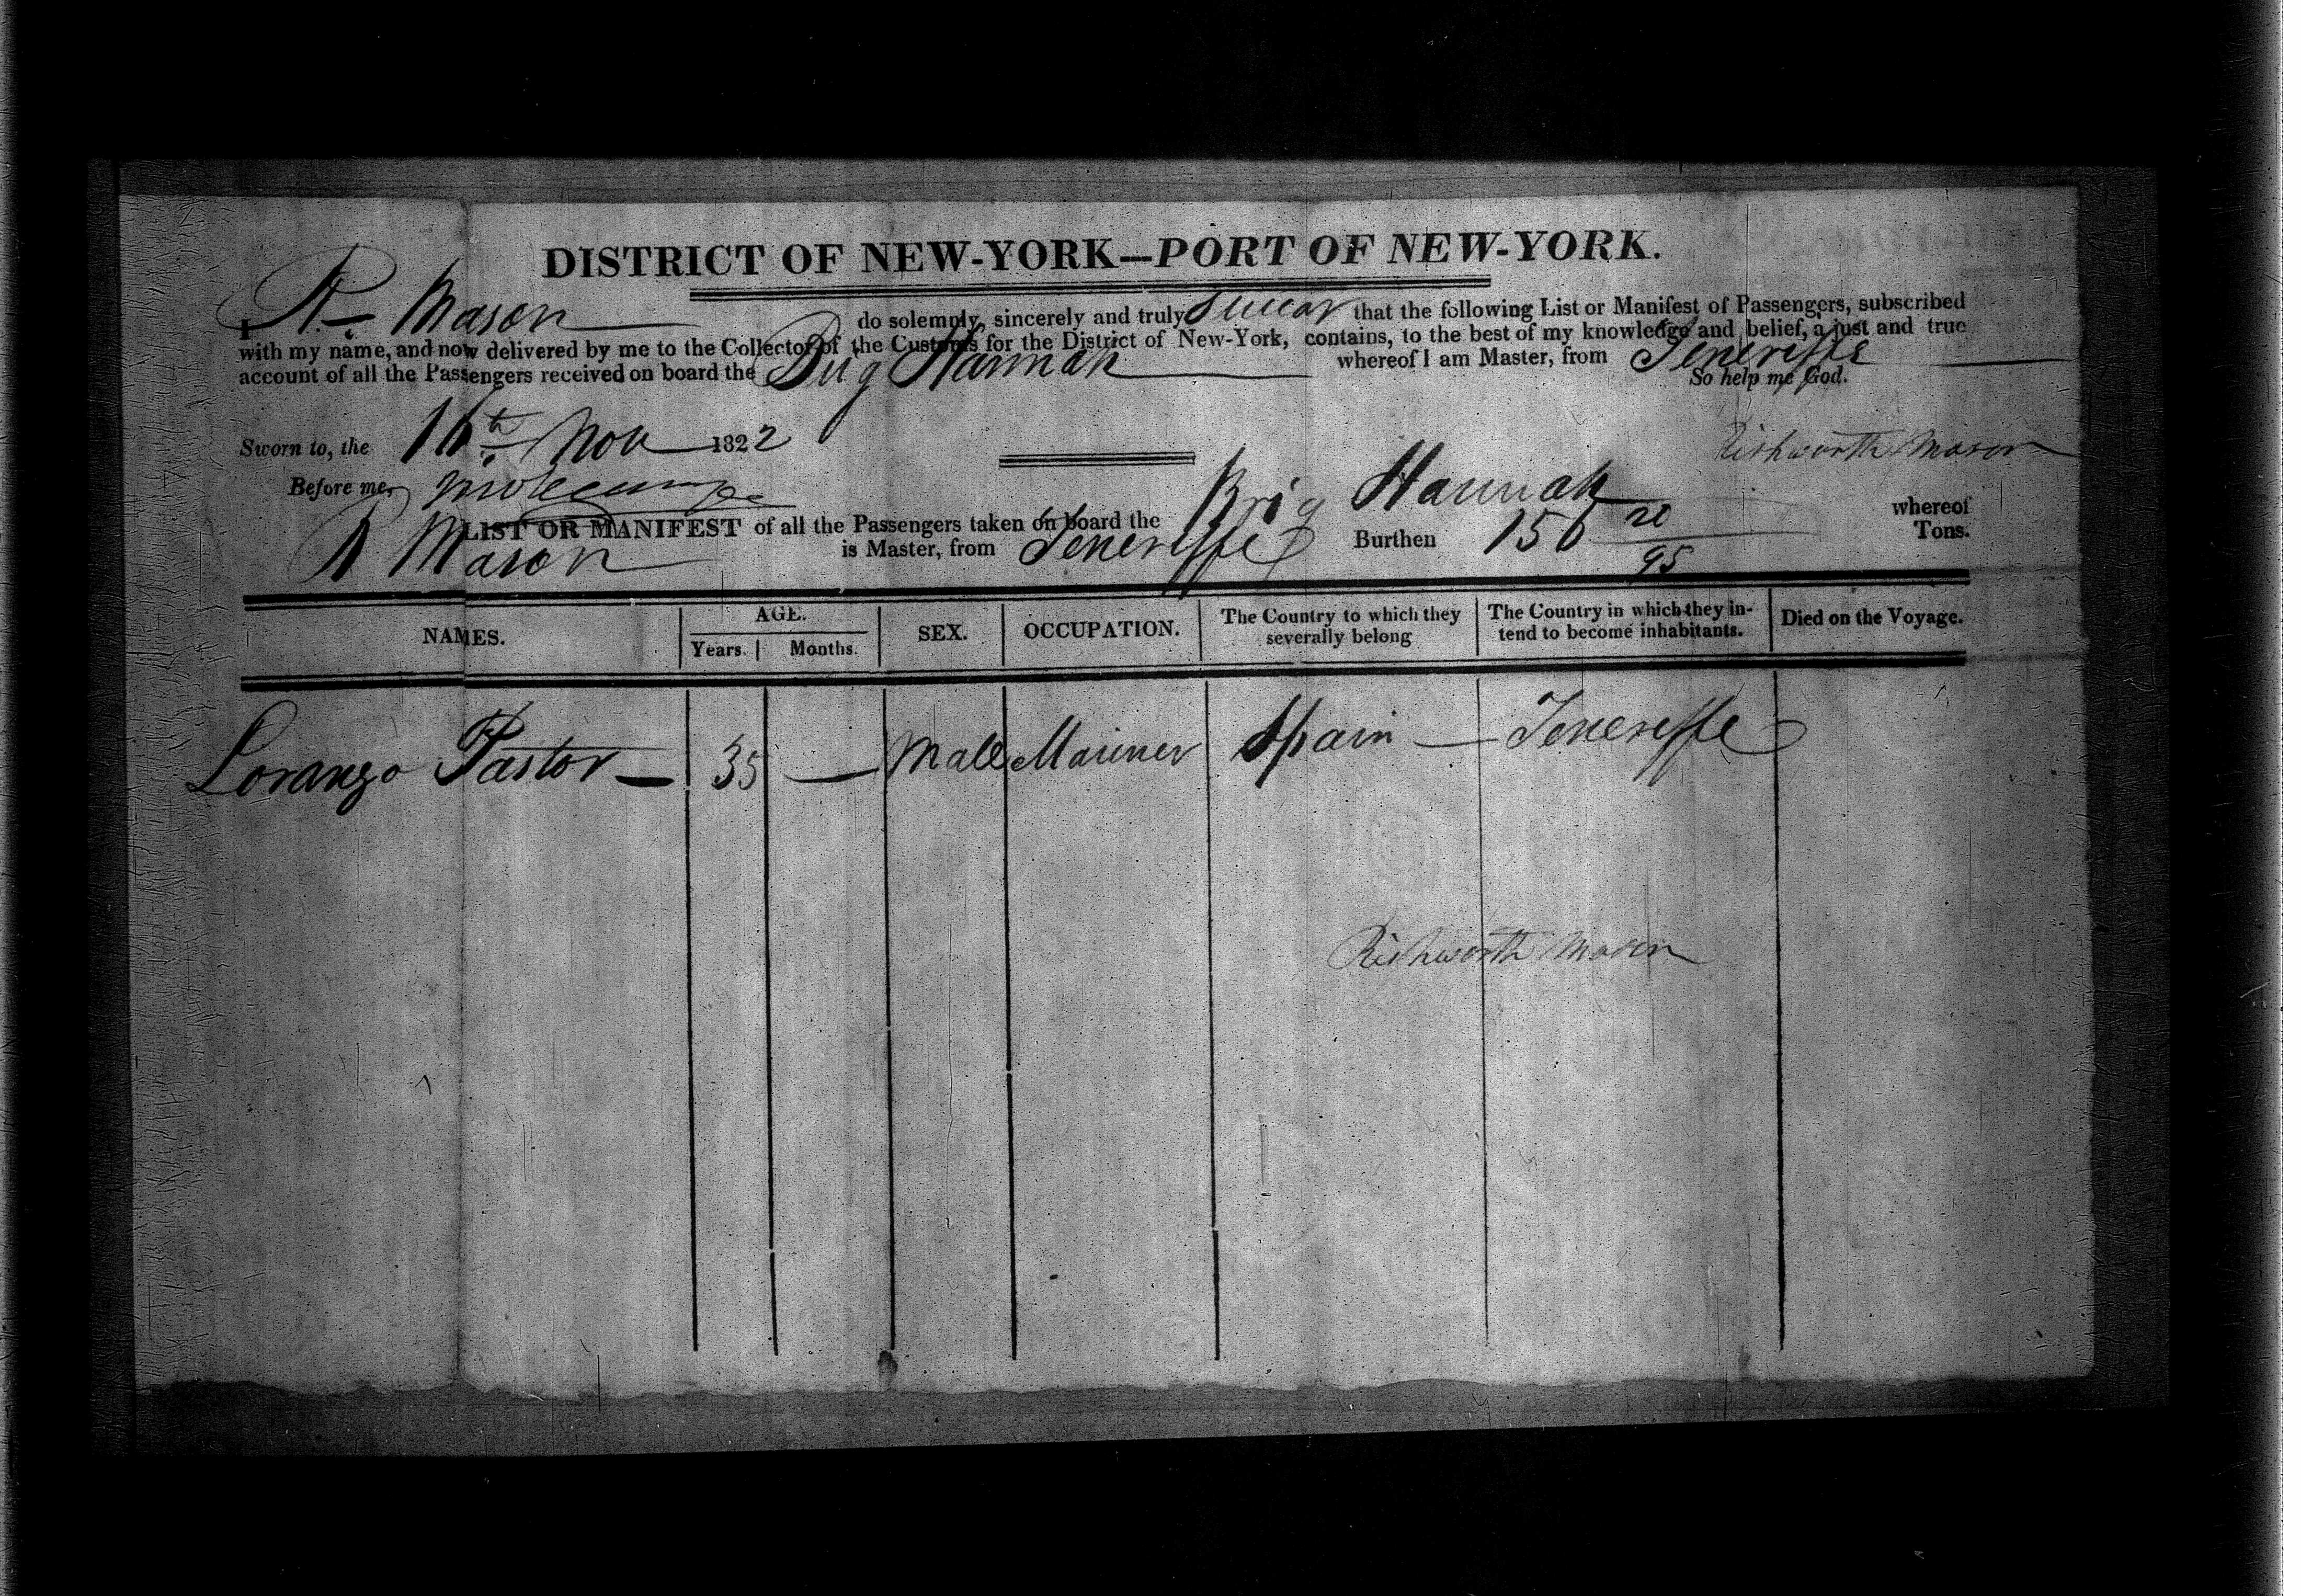 DISTRICT OF NEW-YORK—PORT OF NEW-YORK.
I R. Mason do solemnly, sincerely and truly Swear that the following List or Manifest of Passengers, subscribed
with my name, and now delivered by me to the Collector of the Customs for the District of New-York, contains, to the best of my knowledge and belief, a just and true
account of all the Passengers received on board the Brig Hannah whereof I am Master, from Teneriffe
So help me God.
Sworn to, the 16th Nov 1822
Rishworth Mason
Before me,
LIST OR MANIFEST of all the Passengers taken on board the Brig Hannah whereof
R Mason is Master, from Teneriffe Burthen 156 20/95 Tons.
NAMES. AGE. SEX. OCCUPATION. The Country to which they severally belong The Country in which they in-tend to become inhabitants. Died on the Voyage.
Years. Months.
Loranzo Pastor — 35 — Male Mariner Spain — Teneriffe
Rishworth Mason